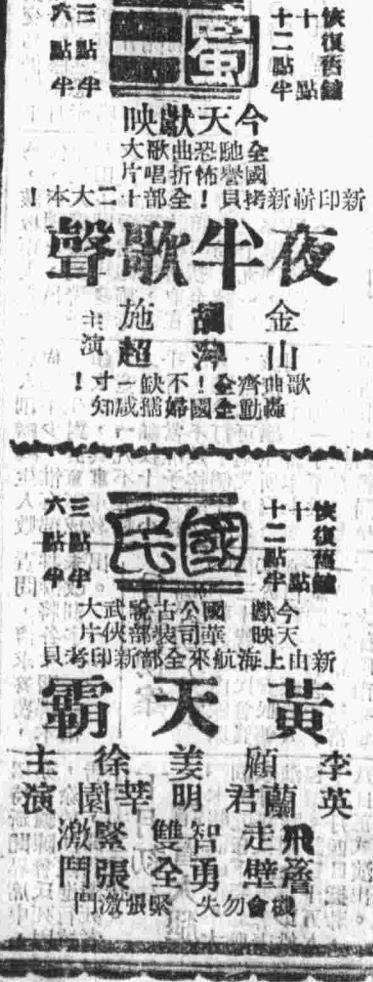 恢復舊鐘
十點
十二點半
三點半
六點半
蜀
今天獻映
全國馳譽恐怖曲折歌唱大片
新印嶄新拷貝！全部十二大本！
夜半歌聲
金山 胡萍 施超 主演
歌曲齊全！不缺一寸！
轟動全國婦孺咸知
恢復舊鐘
十點
十二點半
三點半
六點半
國民
今天獻映
國華公司古裝說部武俠大片
新由上海航來全部新印考貝
黃天霸
李英 顧蘭君 姜明 徐莘園 主演
飛簷走壁 智勇雙全 緊張激鬥
機會勿失 緊張激鬥